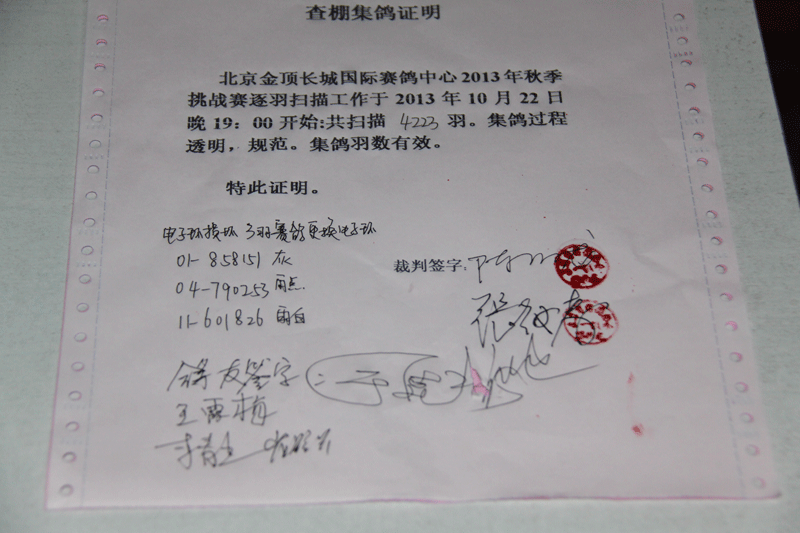 查棚集鸽证明
北京金顶长城国际赛鸽中心2013年秋季
挑战赛逐羽扫描工作于2013年10月22日
晚19：00开始:共扫描 4223 羽。集鸽过程
透明，规范。集鸽羽数有效。
特此证明。
电子环损坏 3羽赛鸽更换电子环
01-858151 灰
04-790253 雨点
11-601826 雨白
裁判签字:
鸽友签字：
王雪梅